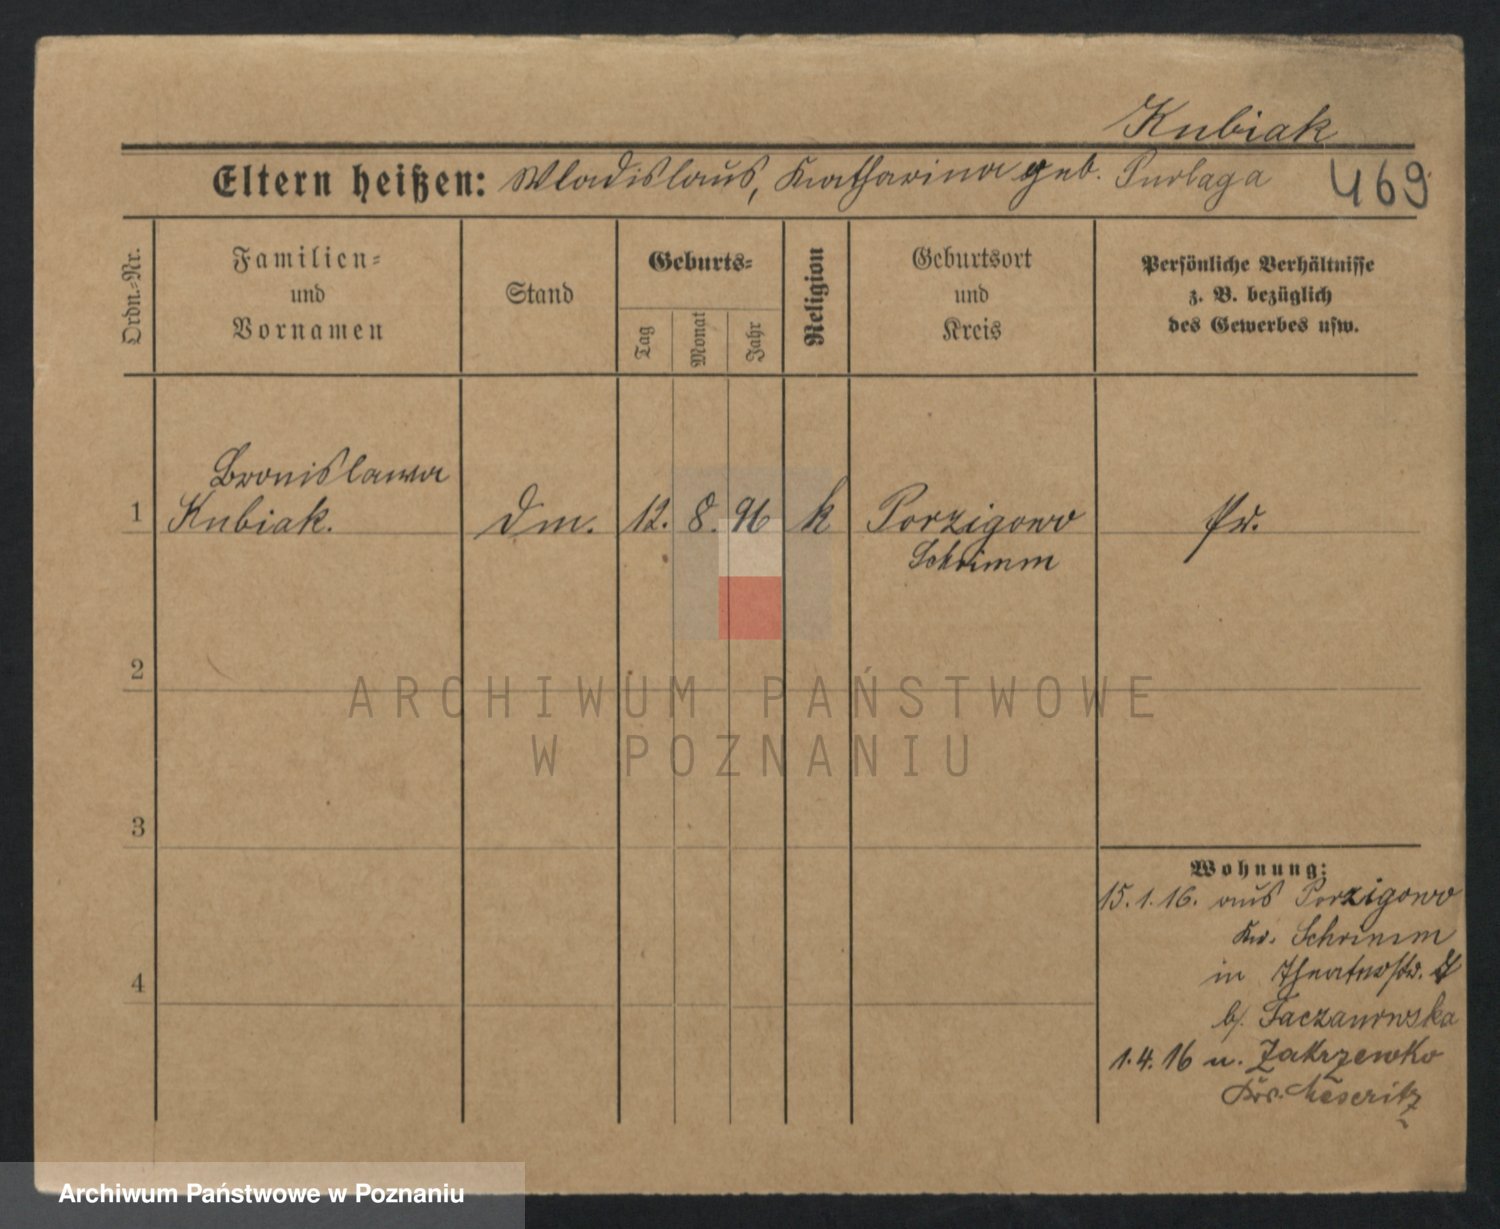 Kubiak
Eltern heißen: Wladislaus, Katharina geb. Purlaga 469
Ordn.-Nr.
Familien-
und
Vornamen
Stand
Geburts-
Tag
Monat
Jahr
Religion
Geburtsort
und
Kreis
Persönliche Verhältnisse
z. B. bezüglich
des Gewerbes usw.
Bronislawa
1 Kubiak. Dm. 12. 8. 96 k Porzigowo
Schrimm
2
3
4
Wohnung:
15.1.16. aus Porzigowo
Kr. Schrimm
in Theaterstr.
b/ Taczanowska
1.4.16 n. Zakrzewko
Krs. Meseritz
ARCHIWUM PAŃSTWOWE
W POZNANIU
Archiwum Państwowe w Poznaniu